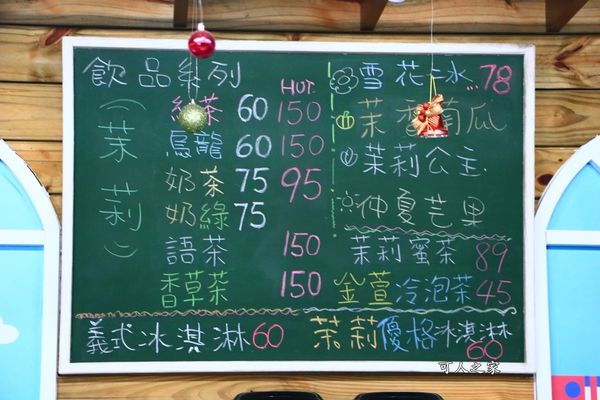 飲品系列
HOT
(茉莉)
紅茶 60 150
烏龍 60 150
奶茶 75 95
奶綠 75
語茶 150
香草茶 150
義式冰淇淋 60
雪花冰 78
茉香南瓜
茉莉公主
仲夏芒果
茉莉蜜茶 89
金萱冷泡茶 45
茉莉優格冰淇淋 60
可人之家